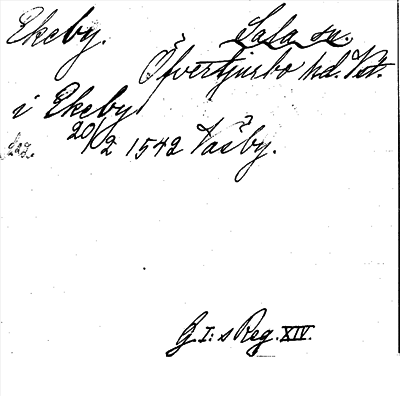 Ekeby. Sala sn.
Öfvertjurbo hd. Vst.
i Ekeby
dag. 20/2 1542 Väsby.
G I:s Reg. XIV.